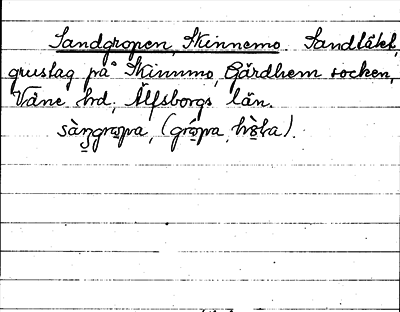 Sandgropen, Skinnemo. Sandtäkt,
grustag på Skinnmo, Gärdhem socken,
Väne hd, Älfsborgs län.
sàŋgro̱pa, (gró̱pa, hò̱la).